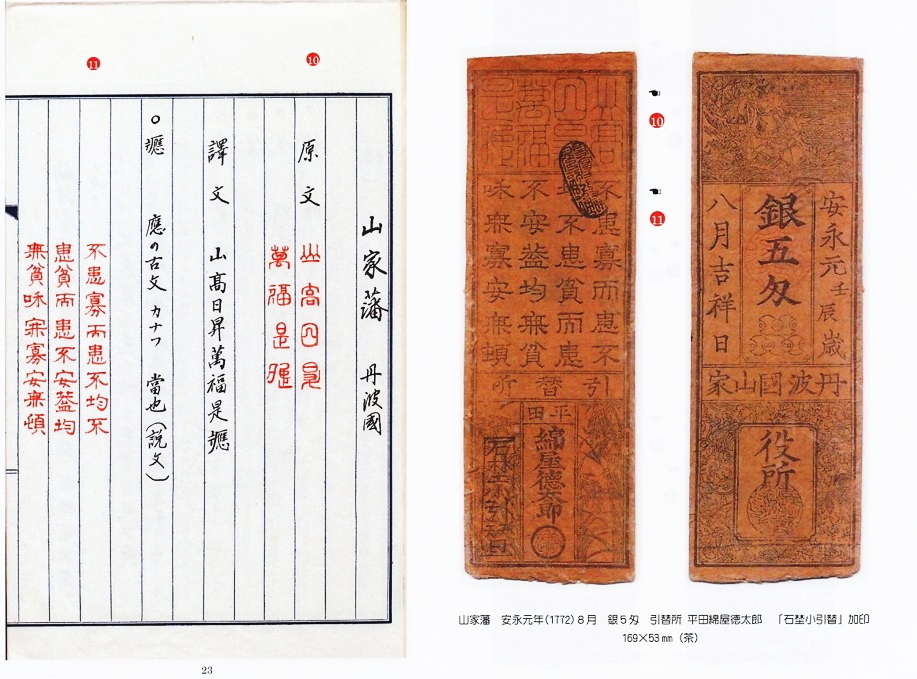 ⑩
⑪
山家藩 丹波國
原文
山高日昇
萬福是
譯文 山髙日昇萬福是
應の古文 カナフ 當也(説文)
不患寡而患不均不
患貧而患不安益均
無貧味無寡安無傾
23
不患寡而患不
均不患貧而患
不安益均無貧
味無寡安無傾
引替所
平田
綿屋德太郎
⑩
⑪
安永元壬辰歳
銀五匁
八月吉祥日
丹波國山家
役所
山家藩 安永元年(1772)8月 銀5匁 引替所 平田綿屋徳太郎 「石埜小引替」加印
169×53㎜(茶)